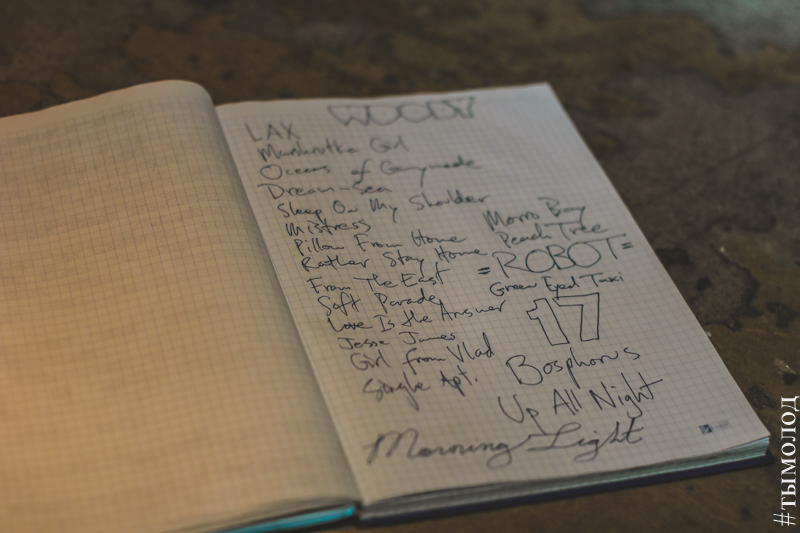 WOODY
LAX
Marshrutka Girl
Oceans of Ganymede
Dream-Sea
Sleep On My Shoulder
Mistress
Pillow From Home
Rather Stay Home
From The East
Soft Parade
Love Is the Answer
Jesse James
Girl from Vlad
Single Apt.
Morro Bay
Peach Tree
=ROBOT=
Green Eyed Taxi
17
Bosphorus
Up All Night
Morning Light
#тымолод